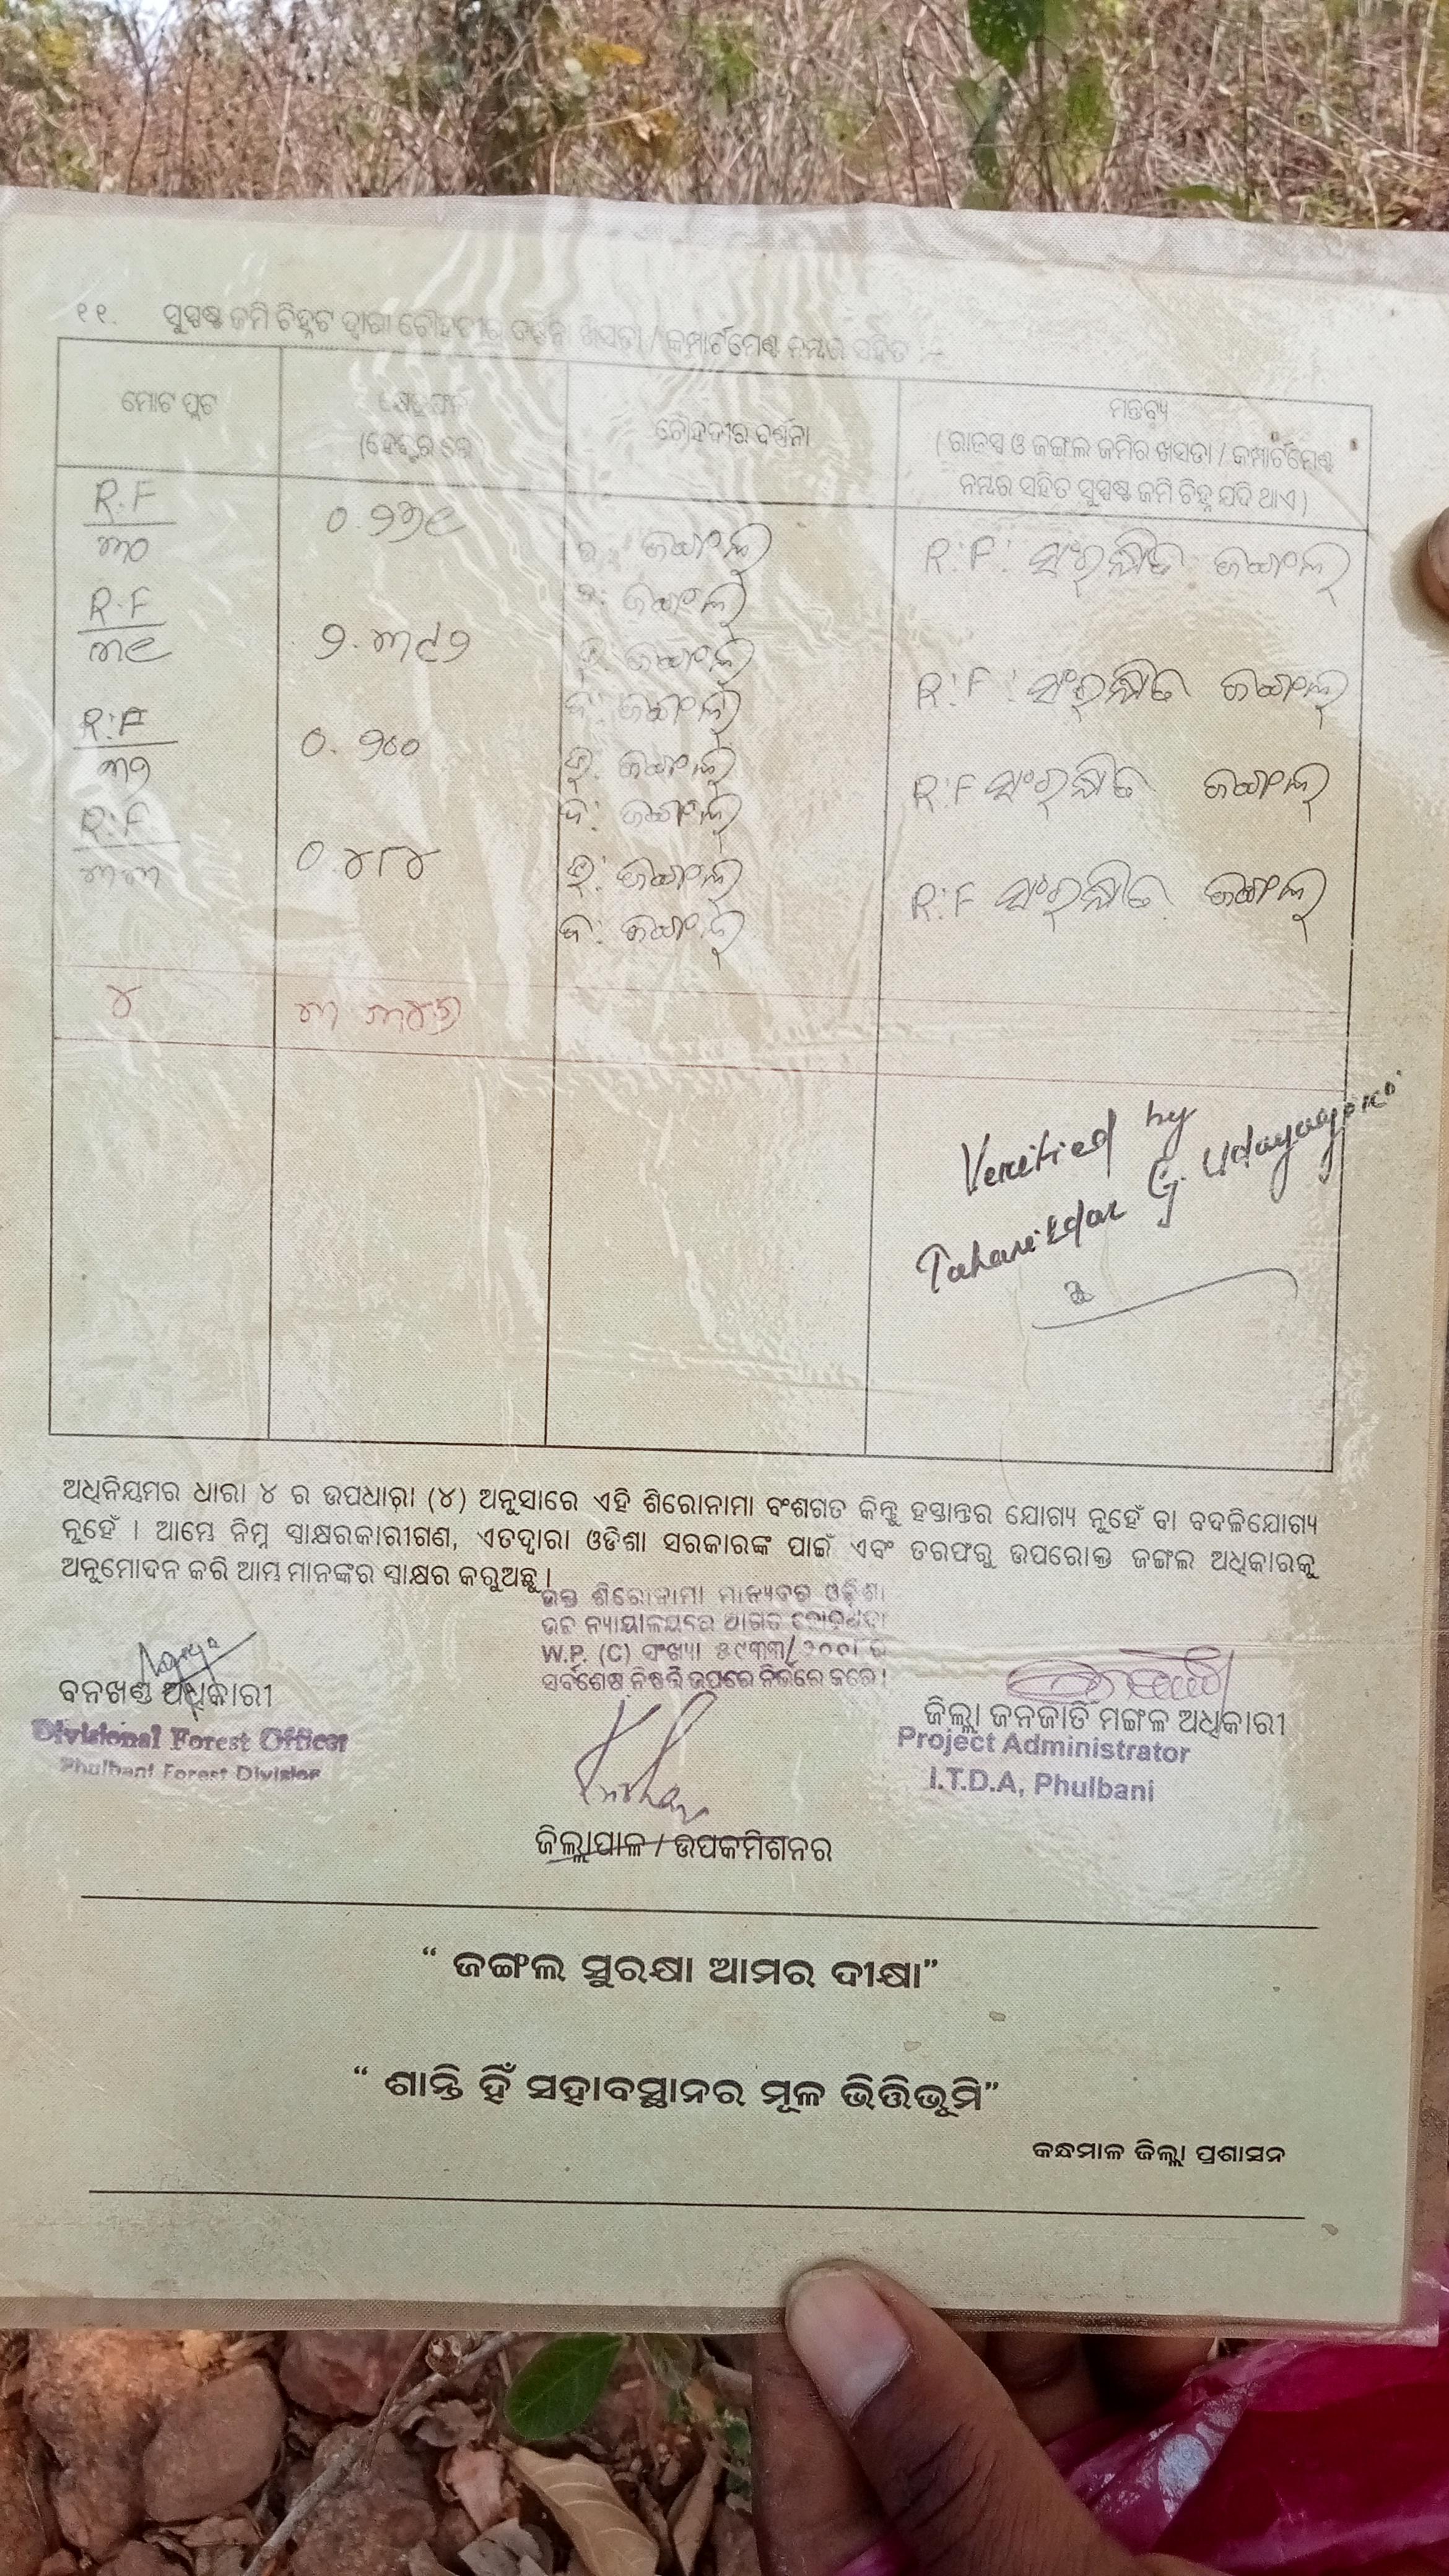 ୧୧. ସୁସ୍ପଷ୍ଟ ଜମି ଚିହ୍ନଟ ଦ୍ୱାରା ଚୌହଦୀର ଖସଡା / କମ୍ପାର୍ଟମେଣ୍ଟ ନମ୍ବର ସହିତ :-
ମୋଟ ପ୍ଲଟ
କ୍ଷେତ୍ରଫଳ
(ହେକ୍ଟର ରେ)
ଚୌହଦୀର ବର୍ଣ୍ଣନା
ମନ୍ତବ୍ୟ
( ରାଜସ୍ୱ ଓ ଜଙ୍ଗଲ ଜମିର ଖସଡା / କମ୍ପାର୍ଟମେଣ୍ଟ
ନମ୍ବର ସହିତ ସୁସ୍ପଷ୍ଟ ଜମି ଚିହ୍ନ ଯଦି ଥାଏ )
R.F
୩୦
ଉ: ଜଙ୍ଗଲ
ଦ: ଜଙ୍ଗଲ
R.F. ସଂରକ୍ଷିତ ଜଙ୍ଗଲ
R.F
୩୧
୨.୩୯୨
ଉ: ଜଙ୍ଗଲ
ଦ: ଜଙ୍ଗଲ
R.F. ସଂରକ୍ଷିତ ଜଙ୍ଗଲ
R.F
୩୨
ଉ: ଜଙ୍ଗଲ
ଦ: ଜଙ୍ଗଲ
R.F ସଂରକ୍ଷିତ ଜଙ୍ଗଲ
R.F
୩୩
୦.୪୮୪
ଉ: ଜଙ୍ଗଲ
ଦ: ଜଙ୍ଗଲ
R.F ସଂରକ୍ଷିତ ଜଙ୍ଗଲ
୪
Verified by
Tahasildar G. Udayagiri
ଅଧିନିୟମର ଧାରା ୪ ର ଉପଧାରା (୪) ଅନୁସାରେ ଏହି ଶିରୋନାମା ବଂଶଗତ କିନ୍ତୁ ହସ୍ତାନ୍ତର ଯୋଗ୍ୟ ନୁହେଁ ବା ବଦଳିଯୋଗ୍ୟ
ନୁହେଁ । ଆମ୍ଭେ ନିମ୍ନ ସ୍ୱାକ୍ଷରକାରୀଗଣ, ଏତଦ୍ୱାରା ଓଡିଶା ସରକାରଙ୍କ ପାଇଁ ଏବଂ ତରଫରୁ ଉପରୋକ୍ତ ଜଙ୍ଗଲ ଅଧିକାରକୁ
ଅନୁମୋଦନ କରି ଆମ୍ଭମାନଙ୍କର ସ୍ୱାକ୍ଷର କରୁଅଛୁ ।
ଉକ୍ତ ଶିରୋନାମା ମାନ୍ୟବର ଓଡ଼ିଶା
ଉଚ୍ଚ ନ୍ୟାୟାଳୟରେ ଆଗତ
W.P. (C) ସଂଖ୍ୟା
ସର୍ବଶେଷ ନିଷ୍ପତ୍ତି ଉପରେ ନିର୍ଭର କରେ ।
ବନଖଣ୍ଡ ଅଧିକାରୀ
Divisional Forest Officer
Phulbani Forest Division
ଜିଲ୍ଲା ଜନଜାତି ମଙ୍ଗଳ ଅଧିକାରୀ
Project Administrator
I.T.D.A, Phulbani
ଜିଲ୍ଲାପାଳ / ଉପକମିଶନର
“ ଜଙ୍ଗଲ ସୁରକ୍ଷା ଆମର ଦୀକ୍ଷା”
“ ଶାନ୍ତି ହିଁ ସହାବସ୍ଥାନର ମୂଳ ଭିତ୍ତିଭୂମି”
କନ୍ଧମାଳ ଜିଲ୍ଲା ପ୍ରଶାସନ